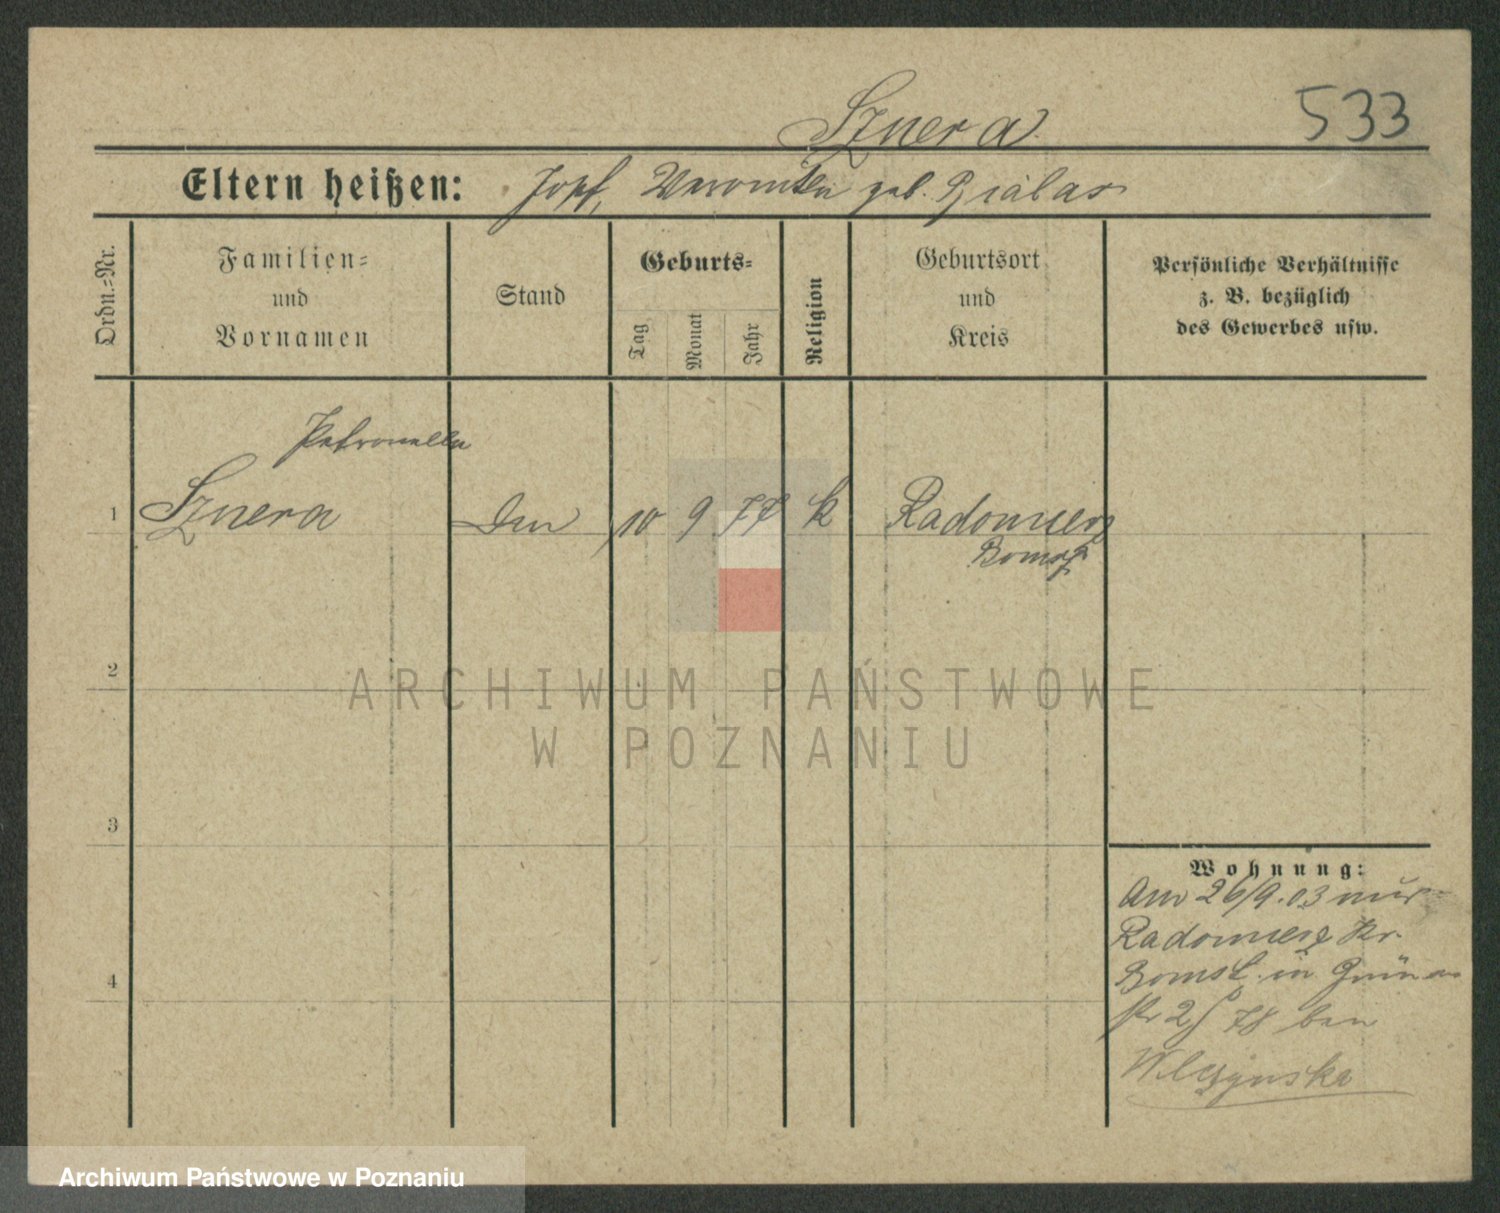 Sznera
533
Eltern heißen: Josef, Veronika geb. Bialas
Ordn.-Nr.
Familien-
und
Vornamen
Stand
Geburts-
Tag
Monat
Jahr
Religion
Geburtsort
und
Kreis
Persönliche Verhältnisse
z. B. bezüglich
des Gewerbes usw.
Petronella
1 Sznera 10 9 77 k Radomierz
Bomst
2
ARCHIWUM PAŃSTWOWE
W POZNANIU
3
Wohnung:
Am 26/9.03 aus
Radomierz Kr.
Bomst in
78 bei
4
Archiwum Państwowe w Poznaniu